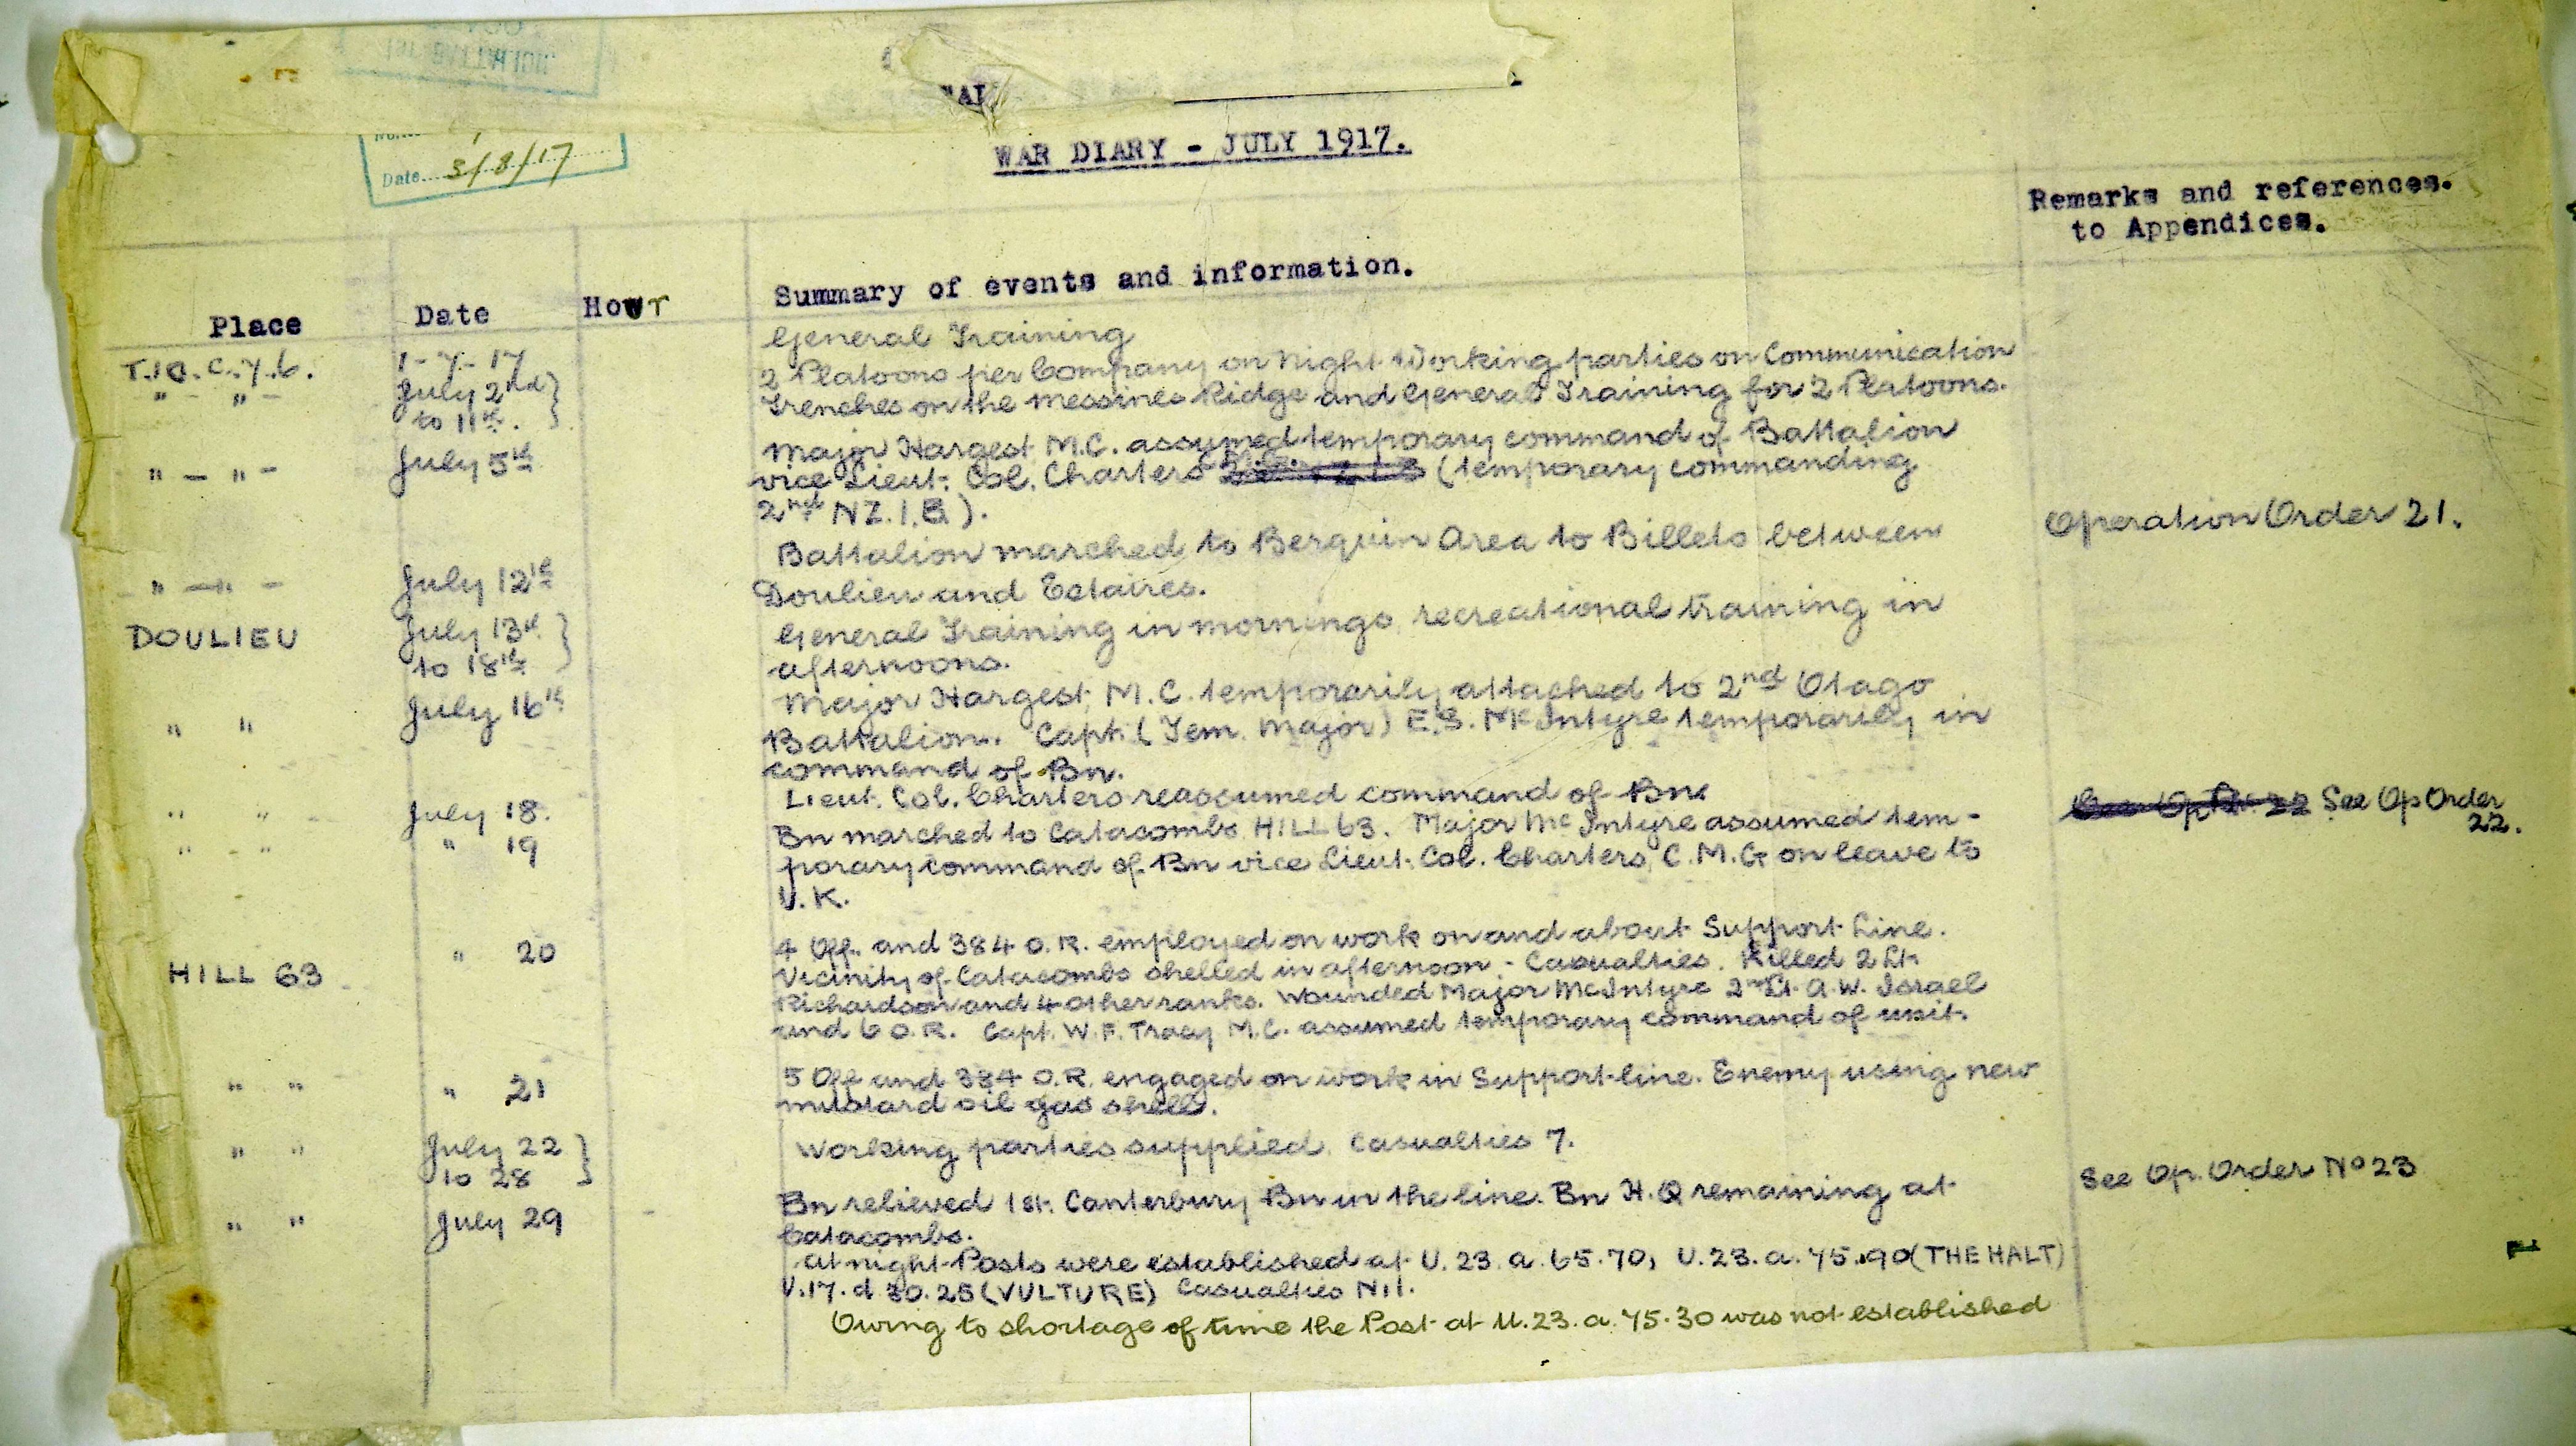 WAR DIARY - JULY 1917.
Date 3/8/17
Remarks and references.
to Appendices.
Place Date Hour Summary of events and information.
1-7-17 General Training
" - " - July 2nd } 2 Platoons per Company on Night Working parties on Communication
to 11th. Trenches on the Messines Ridge and General Training for 2 Platoons.
" - " - July 5th Major Hargest M.C. assumed temporary command of Battalion
vice Lieut. Col. Charters (temporary commanding
2nd NZ.I.B).
" - " - July 12th Battalion marched to Berquin Area to Billets between Operation Order 21.
Doulieu and Estaires.
DOULIEU July 13th } General Training in mornings recreational training in
to 18th afternoons.
" " July 16th Major Hargest, M.C. temporarily attached to 2nd Otago
Battalion. Capt. (Tem. Major) E.S. McIntyre temporarily in
command of Bn.
" " - July 18. Lieut. Col. Charters reassumed command of Bn.
" - " " 19 Bn marched to Catacombs HILL 63. Major McIntyre assumed tem- See Op Order
22.
porary command of Bn vice Lieut. Col. Charters, C.M.G on leave to
U.K.
HILL 63 " 20 4 Off. and 384 O.R. employed on work on and about Support Line.
Vicinity of Catacombs shelled in afternoon - Casualties. Killed 2 Lt.
Richardson and 4 other ranks. Wounded Major McIntyre 2nd Lt. A.W. Israel
and 6 O.R. Capt. W.F. Tracy M.C. assumed temporary command of unit.
" " " 21 5 Off and 384 O.R. engaged on work in Support line. Enemy using new
mustard oil gas shell.
" " July 22 } Working parties supplied. Casualties 7.
to 28
" " July 29 Bn relieved 1st. Canterbury Bn in the line. Bn H.Q remaining at See Op. Order No 23
Catacombs.
At night Posts were established at U.23.a.65.70, U.23.a.75.90 (THE HALT)
U.17.d 30.25 (VULTURE) Casualties Nil.
Owing to shortage of time the Post at U.23.a.75.30 was not established